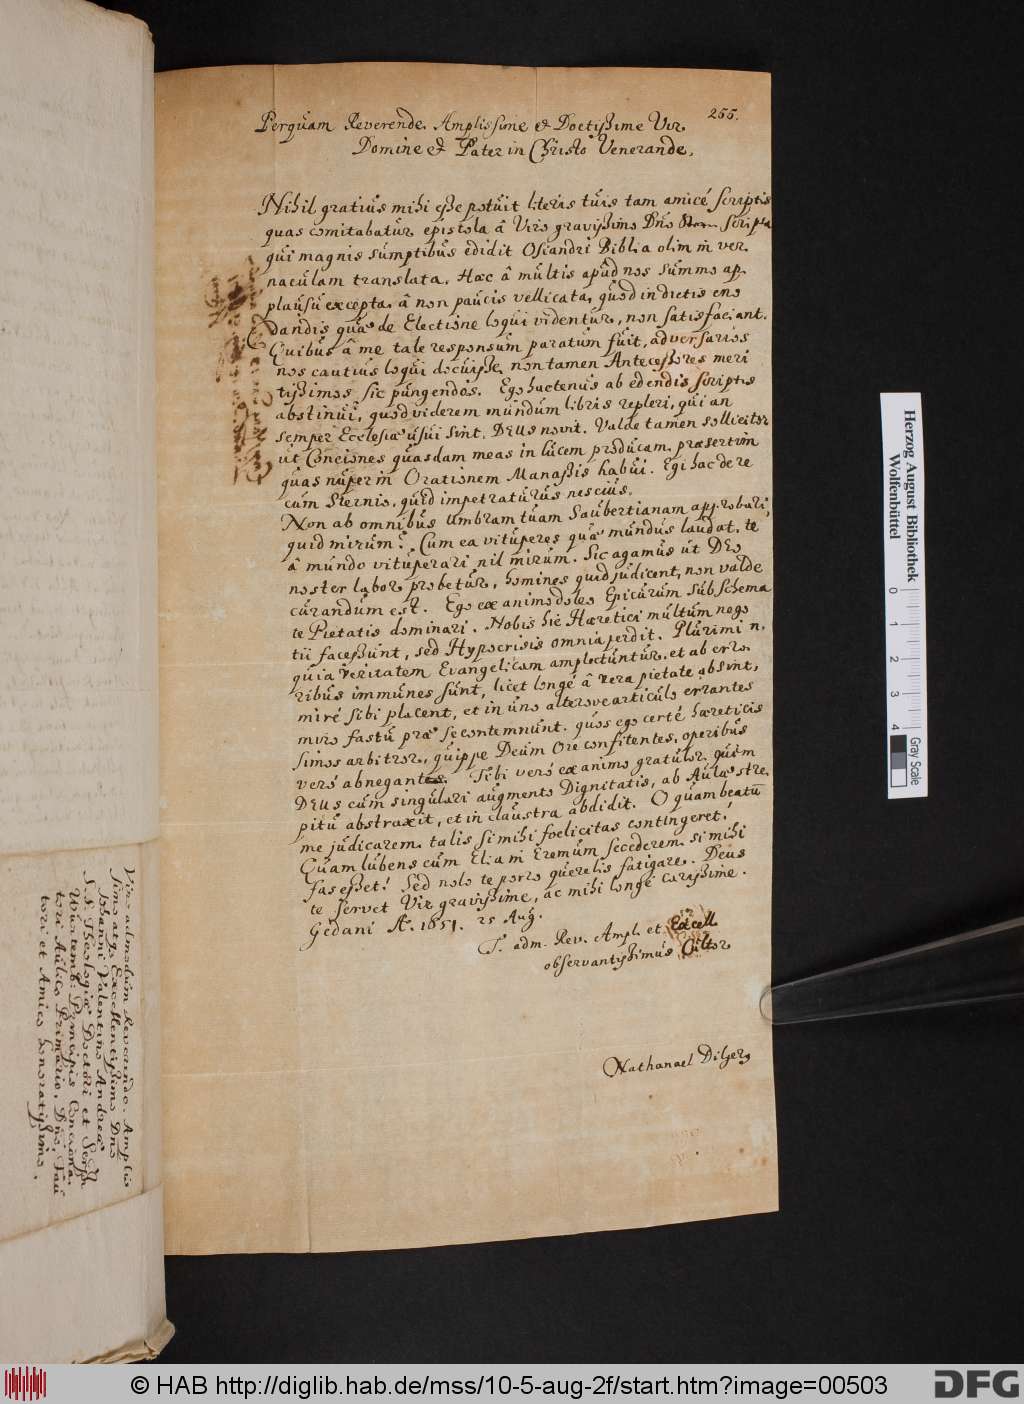 255.
Perquam Reverende. Amplissime et Doctissime Vir
Domine et Pater in Christo Venerande,
Nihil gratius mihi esse potuit literis tuis tam amicé scriptis
quas comitabatur epistola â Viro gravissimo Dno scripta
qui magnis sumptibus edidit Osiandri Biblia olim in ver
naculam translata. Hæc â multis apud nos summo ap
plausu excepta, â non paucis vellicata, quod in dictis eno
dandis quæ de Electione loqui videntur, non satisfaciant.
Quibus â me tale responsum paratum fuit, adversarios
nos cautius loqui docuisse, non tamen Antecessores meri
tissimos sic pungendos. Ego hactenus ab edendis scriptis
abstinui, quod viderem mundum libris repleri, qui an
semper Ecclesiæ usui sint, Deus novit. Valde tamen sollicitor
ut Conciones quasdam meas in lucem producam, præsertim
quas nuper in Orationem Manassis habui. Egi hac de re
cum Sternis, quid impetraturus nescius.
Non ab omnibus Umbram tuam Saubertianam approbari,
quid mirum? Cum ea vituperes quæ mundus laudat, te
â mundo vituperari nil mirum. Sic agamus ut DEO
noster labor probetur, homines quid judicent, non valde
curandum est. Ego ex animo doleo Epicurum sub schema
te Pietatis dominari. Nobis hic Hæretici multum nego
tii facessunt, sed Hypocrisis omnia perdit. Plurimi n.
quia veritatem Evangelicam amplectuntur, et ab erro
ribus immunes sunt, licet longé â vera pietate absint,
miré sibi placent, et in uno alterove articulo errantes
miro fastu præ se contemnunt. quos ego certé hæreticis
simos arbitror, quippe Deum Ore confitentes, operibus
veró abnegantes. Tibi veró ex animo gratulor quem
DEUS cum singulari augmento Dignitatis, ab Aulæ stre
pitu abstraxit, et in claustra abdidit. O quam beatū
me judicarem talis si mihi foelicitas contingeret!
Quam lubens cum Elia in Eremum secederem si mihi
fas esset! Sed nolo te porro querelis fatigare. Deus
te servet Vir gravissime, ac mihi longé carissime.
Gedani A. 1651. 25 Aug.
T. adm. Rev. Ampl. et Excell
observantissimus Cultor
Nathanael Dilger
Viro admodum Reverendo. Amplis
simo atqs Excellentissimo Dno
Johanni Valentino Andreæ
S.S. Theologiæ Doctori et Sereniss.
Würtemb. Principis Conciona,
tori Aulico Primario, Dno, Fau
tori et Amico honoratissimo.
Herzog August Bibliothek
Wolfenbüttel
0 1 2 3 4
Gray Scale
© HAB http://diglib.hab.de/mss/10-5-aug-2f/start.htm?image=00503
DFG